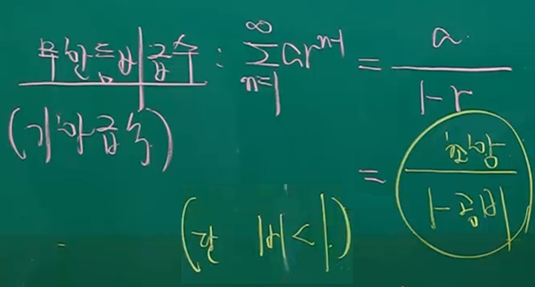 무한등비|급수 : ∑_{n=1}^{∞} ar^{n-1} = a / (1-r)
(기하급수)
= 초항 / (1-공비)
(단 |r|<1)